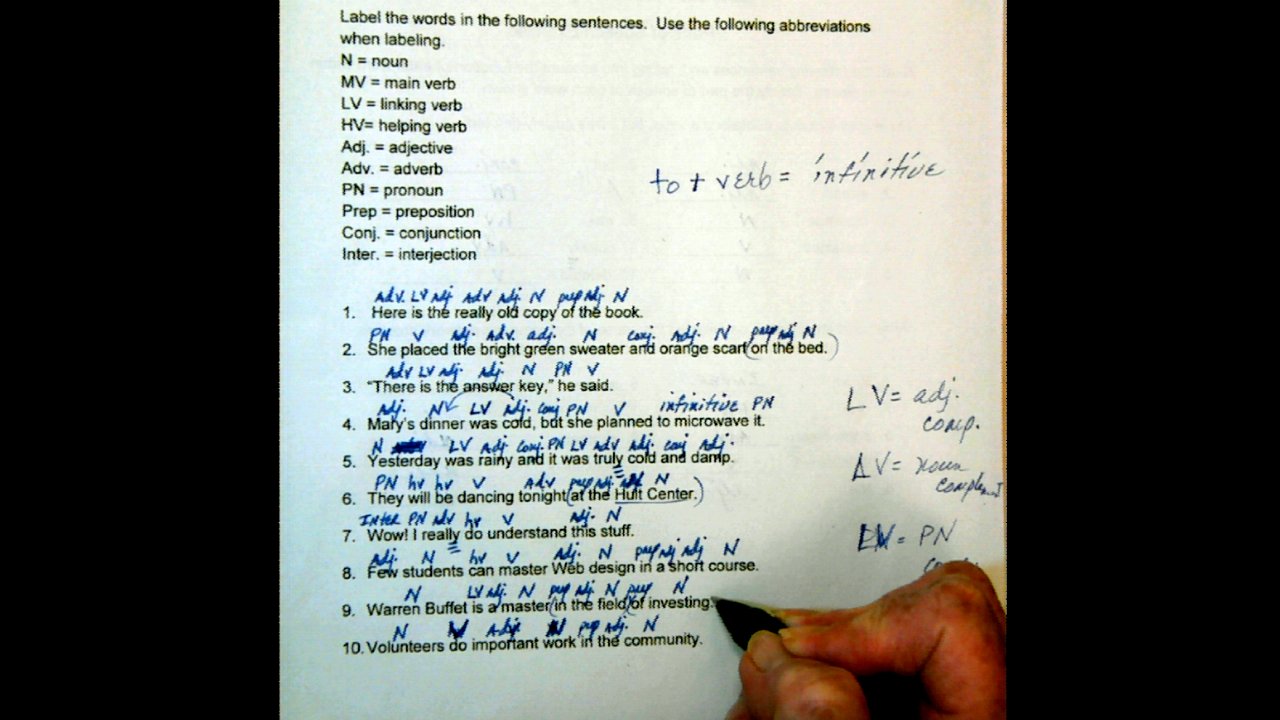 Label the words in the following sentences. Use the following abbreviations
when labeling.
N = noun
MV = main verb
LV = linking verb
HV= helping verb
Adj. = adjective
Adv. = adverb
PN = pronoun
Prep = preposition
Conj. = conjunction
Inter. = interjection
to + verb = infinitive
Adv. LV Adj Adv Adj. N prep Adj N
1. Here is the really old copy of the book.
PN V Adj. Adv. adj. N conj. Adj. N prep adj N
2. She placed the bright green sweater and orange scarf (on the bed.)
Adv LV Adj. Adj. N PN V
3. "There is the answer key," he said.
Adj. N LV Adj. conj PN V infinitive PN
4. Mary's dinner was cold, but she planned to microwave it.
N LV Adj conj. PN LV Adv Adj. conj Adj.
5. Yesterday was rainy and it was truly cold and damp.
PN hv hv V Adv prep adj N
6. They will be dancing tonight (at the Hult Center.)
Inter PN adv hv V Adj. N
7. Wow! I really do understand this stuff.
Adj. N hv V Adj. N prep adj adj N
8. Few students can master Web design in a short course.
N LV adj. N prep adj N prep N
9. Warren Buffet is a master (in the field) (of investing.
N V Adj N prep Adj. N
10. Volunteers do important work in the community.
LV = adj.
comp.
LV = noun
LV = PN